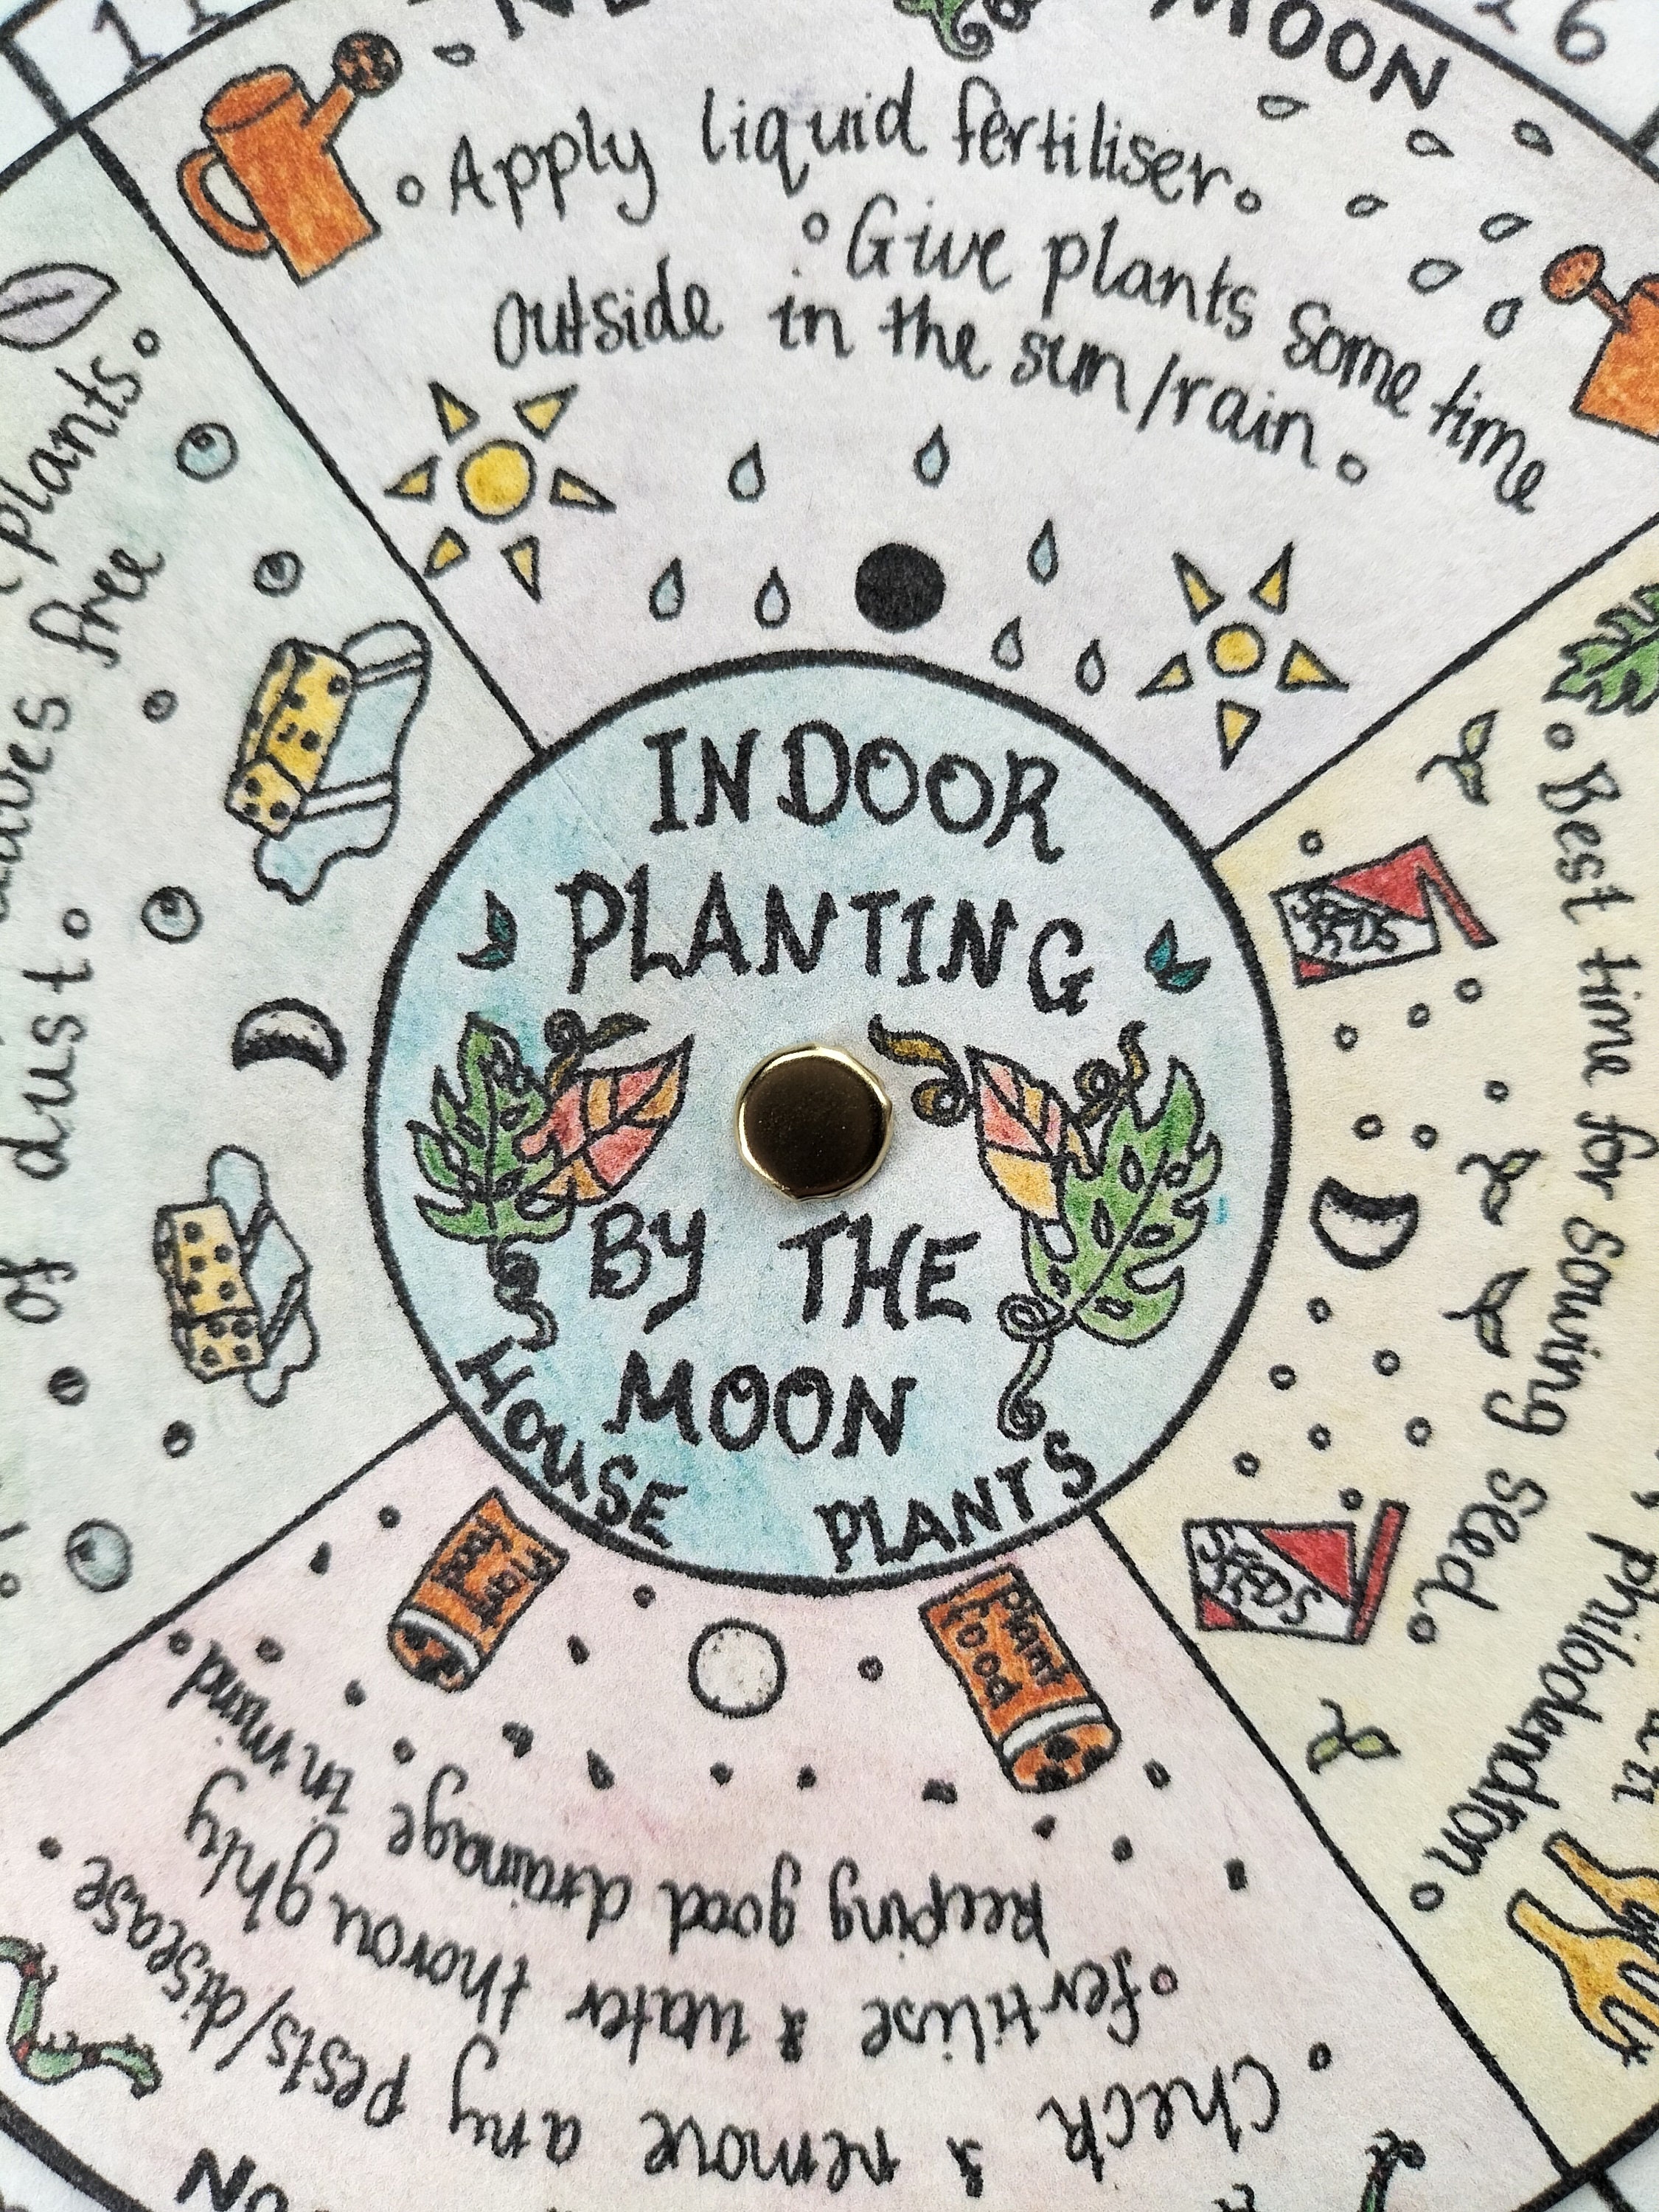 INDOOR
PLANTING
BY THE
MOON
HOUSE PLANTS
MOON
11
26
Apply liquid fertiliser.
Give plants some time
outside in the sun/rain.
Best time for sowing seed.
philodendron.
SEEDS
SEEDS
Check & remove any pests/disease.
fertilise & water thoroughly
keeping good drainage in mind.
Plant
food
Plant
food
plants.
free
of dust.